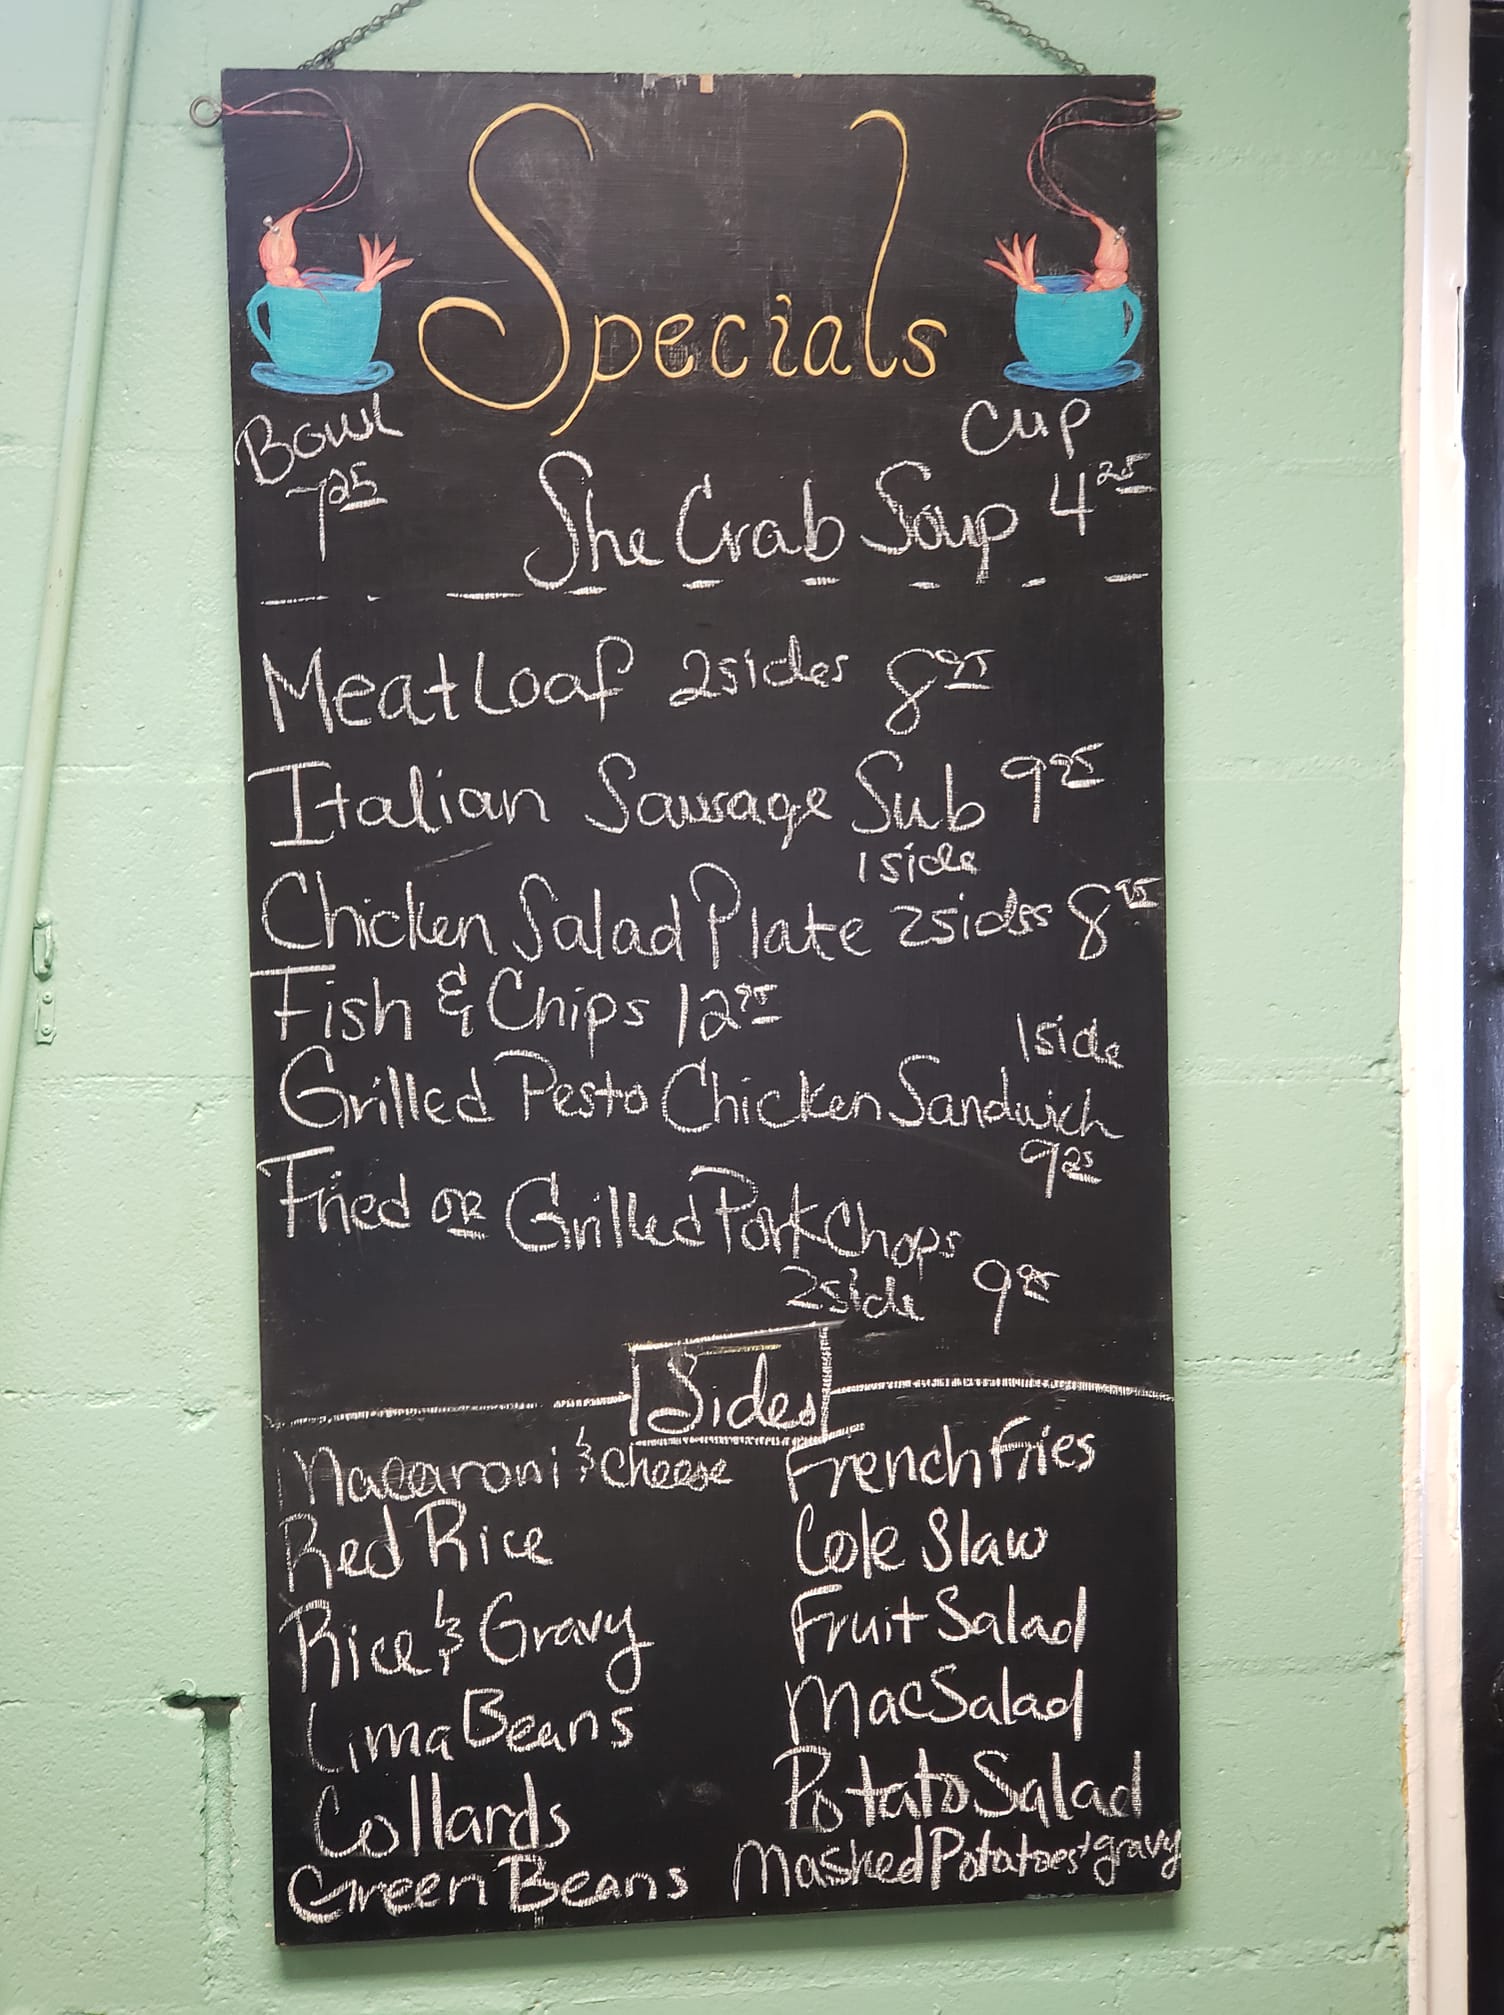 Specials
Bowl Cup
7.25 She Crab Soup 4.25
MeatLoaf 2sides 8.95
Italian Sausage Sub 9.95
1 side
Chicken Salad Plate 2sides 8.95
Fish & Chips 12.95
1side
Grilled Pesto Chicken Sandwich
9.25
Fried OR Grilled Pork Chops
2side 9.95
Sides
Macaroni & Cheese French Fries
Red Rice Cole Slaw
Rice & Gravy Fruit Salad
Lima Beans Mac Salad
Collards Potato Salad
Green Beans Mashed Potatoes + gravy